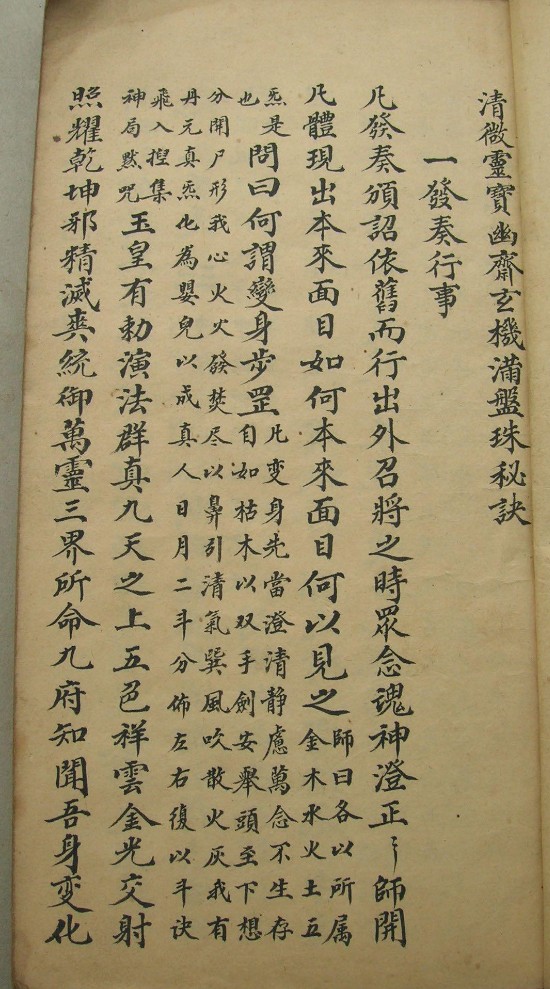 清微靈寶幽齋玄機滿盤珠秘訣
一發奏行事
凡發奏頒詔依舊而行出外召將之時眾念魂神澄正〻師開
凡體現出本來面目如何本來面目何以見之師曰各以所属金木水火土五
炁是也問曰何謂變身步罡凡变身先當澄清静慮萬念不生存自如枯木以双手劍安舉頭至下想
分開尸形我心火火發焚尽以鼻引清氣巽風吹散火灰我有
丹元真炁化為嬰兒以成真人日月二斗分佈左右復以斗诀
飛入揑集神局默咒玉皇有勅演法群真九天之上五色祥雲金光交射
照耀乾坤邪精滅爽統御萬靈三界所命九府知聞吾身变化